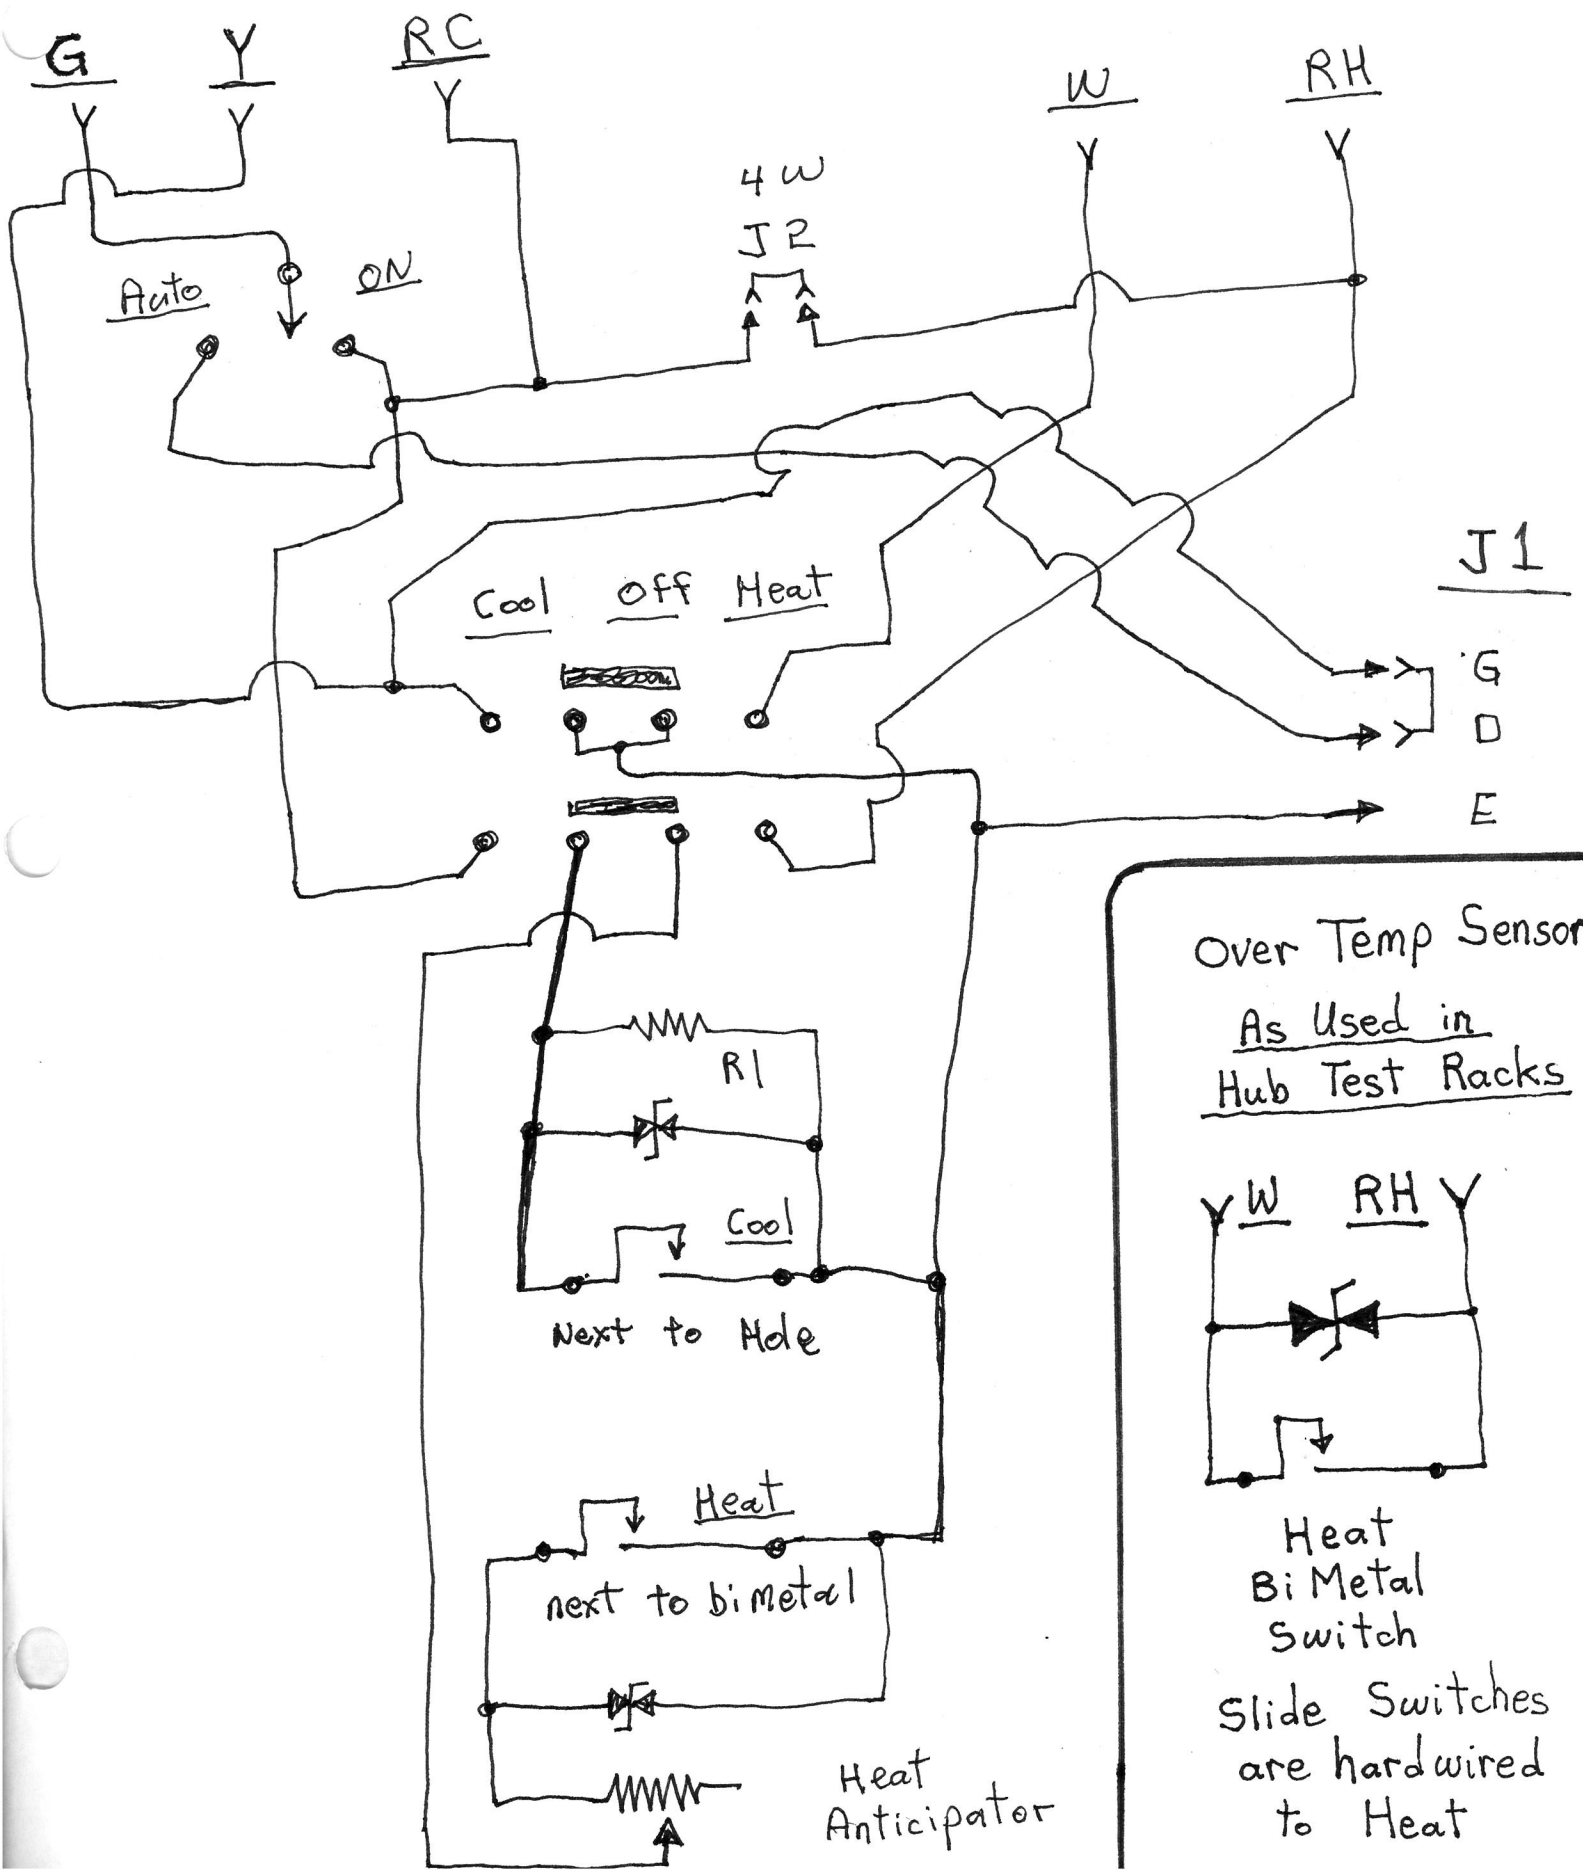 G
Y
RC
W
RH
4W
J2
Auto
ON
Cool
Off
Heat
J1
G
D
E
R1
Cool
Next to Hole
Heat
next to bimetal
Heat
Anticipator
Over Temp Sensor
As Used in
Hub Test Racks
W
RH
Heat
BiMetal
Switch
Slide Switches
are hardwired
to Heat